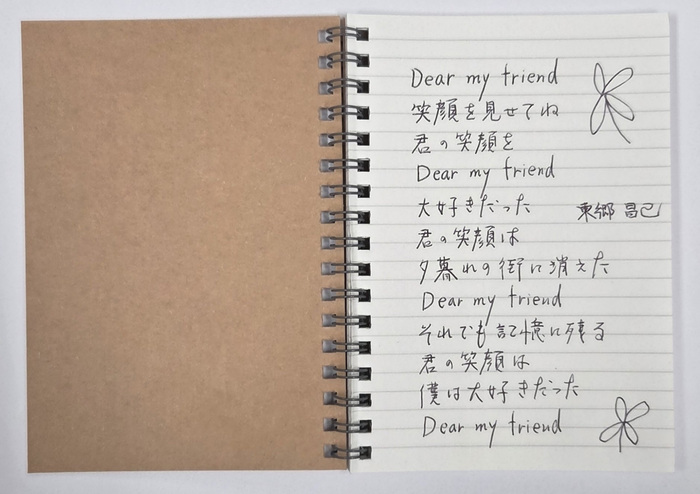 Dear my friend
笑顔を見せてね
君の笑顔を
Dear my friend
大好きだった
東郷 昌己
君の笑顔は
夕暮れの街に消えた
Dear my friend
それでも記憶に残る
君の笑顔は
僕は大好きだった
Dear my friend